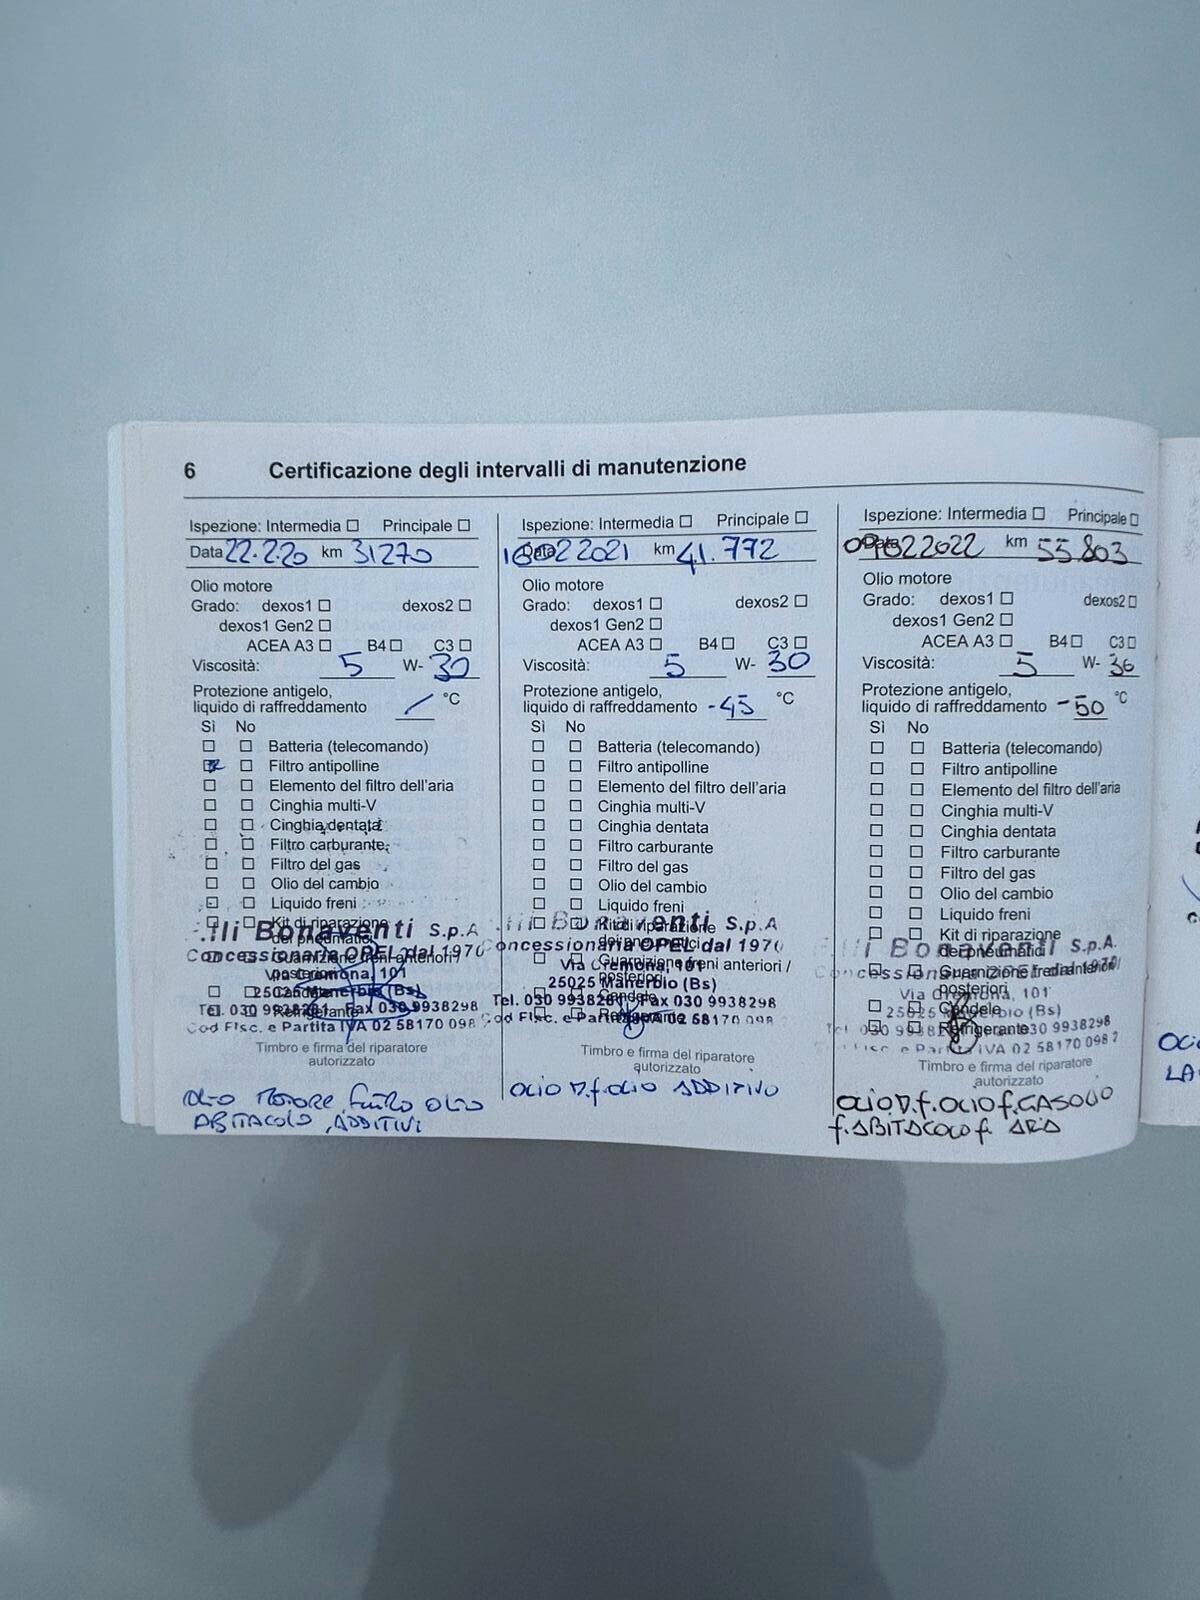 6 Certificazione degli intervalli di manutenzione
Ispezione: Intermedia ☐ Principale ☐
Data 22.2.20 km 31270
Olio motore
Grado: dexos1 ☐ dexos2 ☐
dexos1 Gen2 ☐
ACEA A3 ☐ B4 ☐ C3 ☐
Viscosità: 5 W- 30
Protezione antigelo,
liquido di raffreddamento / °C
Sì No
Batteria (telecomando)
Filtro antipolline
Elemento del filtro dell'aria
Cinghia multi-V
Cinghia dentata
Filtro carburante
Filtro del gas
Olio del cambio
Liquido freni
Kit di riparazione
dei pneumatici
Guarnizione freni anteriori /
posteriori
Candele
Refrigerante
.lli Bonaventi S.p.A
Concessionaria OPEL dal 1970
Via Cremona, 101
25025 Manerbio (Bs)
Tel. 030 9938281 Fax 030 9938298
Cod Fisc. e Partita IVA 02 58170 098
Timbro e firma del riparatore
autorizzato
OLIO MOTORE, FILTRO OLIO
ABITACOLO, ADDITIVI
Ispezione: Intermedia ☐ Principale ☐
Data 16022021 km 41.772
Olio motore
Grado: dexos1 ☐ dexos2 ☐
dexos1 Gen2 ☐
ACEA A3 ☐ B4 ☐ C3 ☐
Viscosità: 5 W- 30
Protezione antigelo,
liquido di raffreddamento -45 °C
Sì No
Batteria (telecomando)
Filtro antipolline
Elemento del filtro dell'aria
Cinghia multi-V
Cinghia dentata
Filtro carburante
Filtro del gas
Olio del cambio
Liquido freni
Kit di riparazione
dei pneumatici
Guarnizione freni anteriori /
posteriori
Candele
Refrigerante
.lli Bonaventi S.p.A
Concessionaria OPEL dal 1970
Via Cremona, 101
25025 Manerbio (Bs)
Tel. 030 9938281 Fax 030 9938298
Cod Fisc. e Partita IVA 02 58170 098 2
Timbro e firma del riparatore
autorizzato
OLIO M. f. OLIO ADDITIVO
Ispezione: Intermedia ☐ Principale ☐
Data 022022 km 55.803
Olio motore
Grado: dexos1 ☐ dexos2 ☐
dexos1 Gen2 ☐
ACEA A3 ☐ B4 ☐ C3 ☐
Viscosità: 5 W- 30
Protezione antigelo,
liquido di raffreddamento -50 °C
Sì No
Batteria (telecomando)
Filtro antipolline
Elemento del filtro dell'aria
Cinghia multi-V
Cinghia dentata
Filtro carburante
Filtro del gas
Olio del cambio
Liquido freni
Kit di riparazione
dei pneumatici
Guarnizione freni anteriori /
posteriori
Candele
Refrigerante
lli Bonaventi S.p.A.
Concessionaria dal 1970
Via Cremona, 101
25025 Manerbio (Bs)
Tel 030 9938 030 9938298
Fisc. e Partita IVA 02 58170 098 2
Timbro e firma del riparatore
autorizzato
OLIO M. f. OLIO f. GASOLIO
f. ABITACOLO f. ARIA